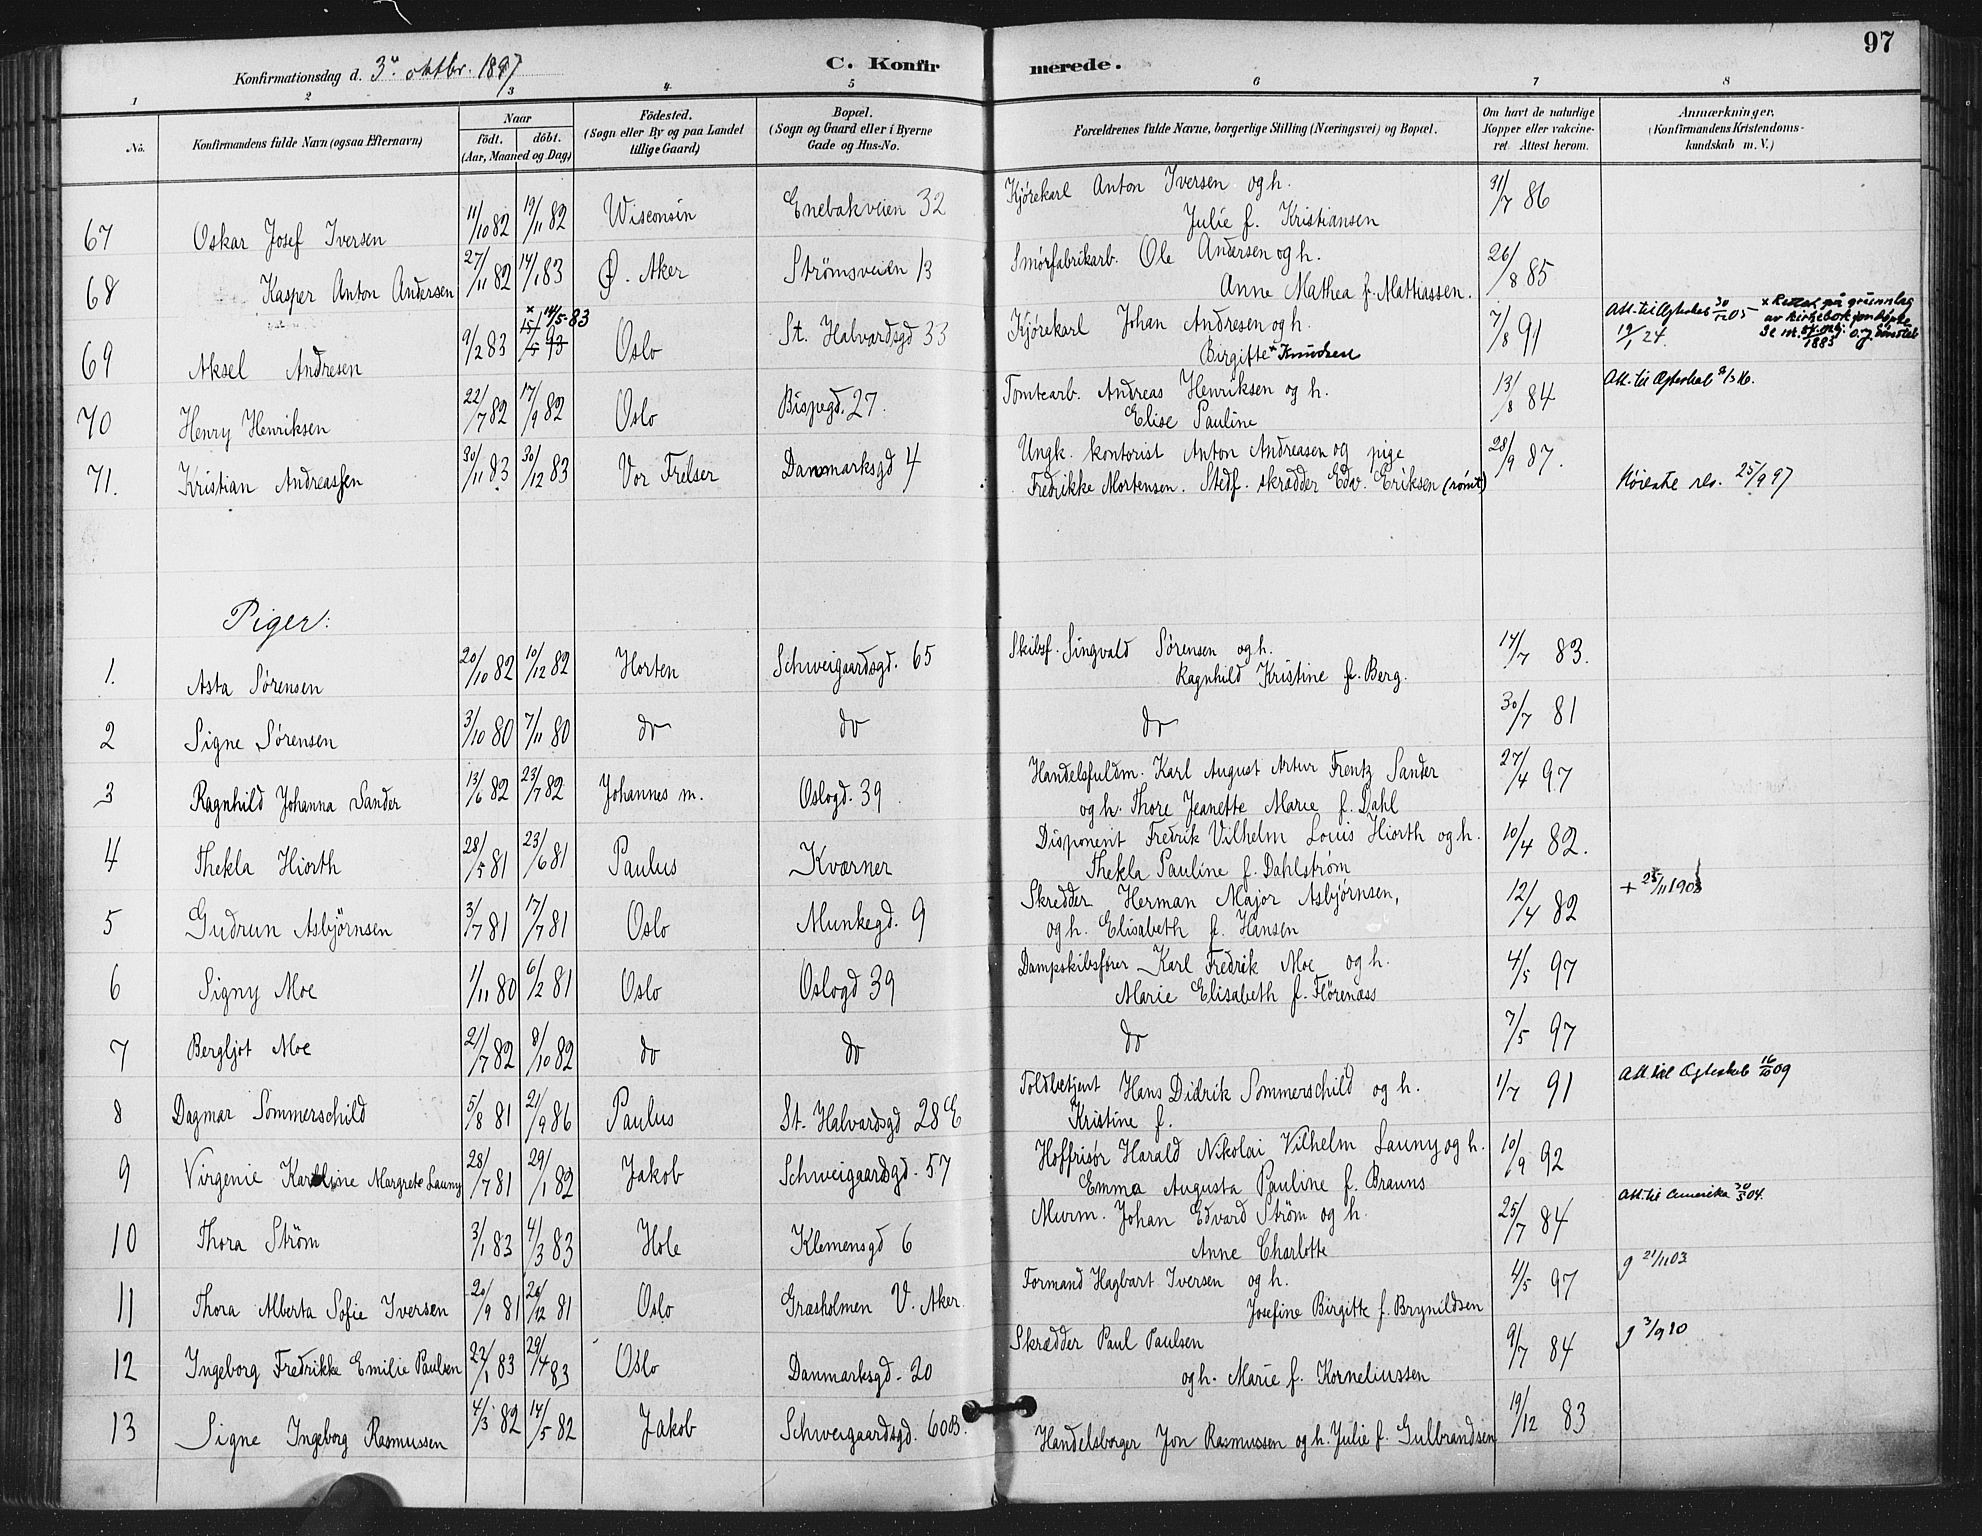 97
Konfirmationsdag d. 3die oktbr. 1897
C. Konfirmerede.
1 2 3 4 5 6 7 8
No.
Konfirmandens fulde Navn (ogsaa Efternavn)
Naar
født. døbt.
(Aar, Maaned og Dag)
Fødested.
(Sogn eller By og paa Landet
tillige Gaard)
Bopæl.
(Sogn og Gaard eller i Byerne
Gade og Hus-No.
Forældrenes fulde Navne, borgerlige Stilling (Næringsvei) og Bopæl.
Om havt de naturlige
Kopper eller vakcine-
ret. Attest herom.
Anmærkninger.
(Konfirmandens Kristendoms-
kundskab m. V.)
67 Oskar Josef Iversen 11/10 82 19/11 82 Wisconsin Enebakveien 32 Kjørekarl Anton Iversen og h. 31/7 86
Julie f. Kristiansen
68 Kasper Anton Andersen 27/11 82 14/1 83 Ø. Aker Strømsveien 13 Smørfabrikarb. Ole Andersen og h. 26/8 85
Anne Mathea f. Mattiassen.
69 Aksel Andresen 9/2 83 15/5 93 x 14/5-83 Oslo St. Halvardsgd 33 Kjørekarl Johan Andresen og h. 7/8 91 Att. til Ægteskab 30/12 05
Birgitte f. Knudsen 19/1 24.
x Rettet på grunnlag
av kirkebok for døpte
1883
70 Henry Henriksen 22/7 82 17/9 82 Oslo Bispegd. 27. Tomtearb. Andreas Henriksen og h. 13/8 84 Att. til Ægteskab
Elise Pauline
71. Kristian Andreassen 30/11 83 30/12 83 Vor Frelser Danmarksgd 4 Ungk. kontorist Anton Andreasen og pige 28/9 87.
Fredrikke Mortensen. Stedf. skrædder Edv. Eriksen (rømt) 25/9 97
Piger:
1. Asta Sørensen 20/10 82 10/12 82 Horten Schweigaardsgd. 65 Skibsf. Singvald Sørensen og h. 14/7 83.
Ragnhild Kristine f. Berg.
2 Signe Sørensen 3/10 80 7/11 80 do do do 30/7 81
3 Ragnhild Johanna Sander 13/6 82 23/7 82 Johannes m. Oslogd. 39 Handelsfuldm. Karl August Artur Frentz Sander 27/4 97
og h. Thore Jeanette Marie f. Dahl
4 Thekla Hiorth 28/5 81 23/6 81 Paulus Kværner Disponent Fredrik Vilhelm Louis Hiorth og h. 10/4 82.
Thekla Pauline f. Dahlstrøm
5 Gudrun Asbjørnsen 3/7 81 17/7 81 Oslo Munkegd. 9 Skrædder Herman Major Asbjørnsen, 12/4 82 + 25/11 1903
og h. Elisabeth f. Hansen
6 Signy Moe 1/11 80 6/2 81 Oslo Oslogd 39 Dampskibsfører Karl Fredrik Moe og h. 4/5 97
Marie Elisabeth f. Florenæss
7 Bergljot Moe 21/7 82 8/10 82 do do do 7/5 97
8 Dagmar Sommerschild 5/8 81 21/9 86 Paulus St. Halvardsgd 28 E Toldbetjent Hans Didrik Sommerschild og h. 1/7 91 Att. til Ægteskab 16/10 09
Kristine f.
9 Virgenie Karoline Margrete Launy 28/7 81 29/1 82 Jakob Schweigaardsgd. 57 Hoffrisør Harald Nikolai Vilhelm Launy og h. 10/9 92
Emma Augusta Pauline f. Brauns
10 Thora Strøm 3/1 83 4/3 83 Hole Klemensgd 6 Murm. Johan Edvard Strøm og h. 25/7 84 Att. til Amerika 30/5 04.
Anne Charlotte
11 Thora Alberta Sofie Iversen 20/9 81 26/12 81 Oslo Græsholmen V. Aker. Formand Hagbart Iversen og h. 4/5 97 g 21/11 03
Josefine Birgitte f. Brynildsen
12 Ingeborg Fredrikke Emilie Paulsen 22/1 83 29/4 83 Oslo Danmarksgd. 20 Skrædder Paul Paulsen 9/7 84 g 3/9 10
og h. Marie f. Korneliussen
13 Signe Ingeborg Rasmussen 4/3 82 14/5 82 Jakob Schweigaardsgd. 60B. Handelsborger Jon Rasmussen og h. Julie f. Gulbrandsen 19/12 83